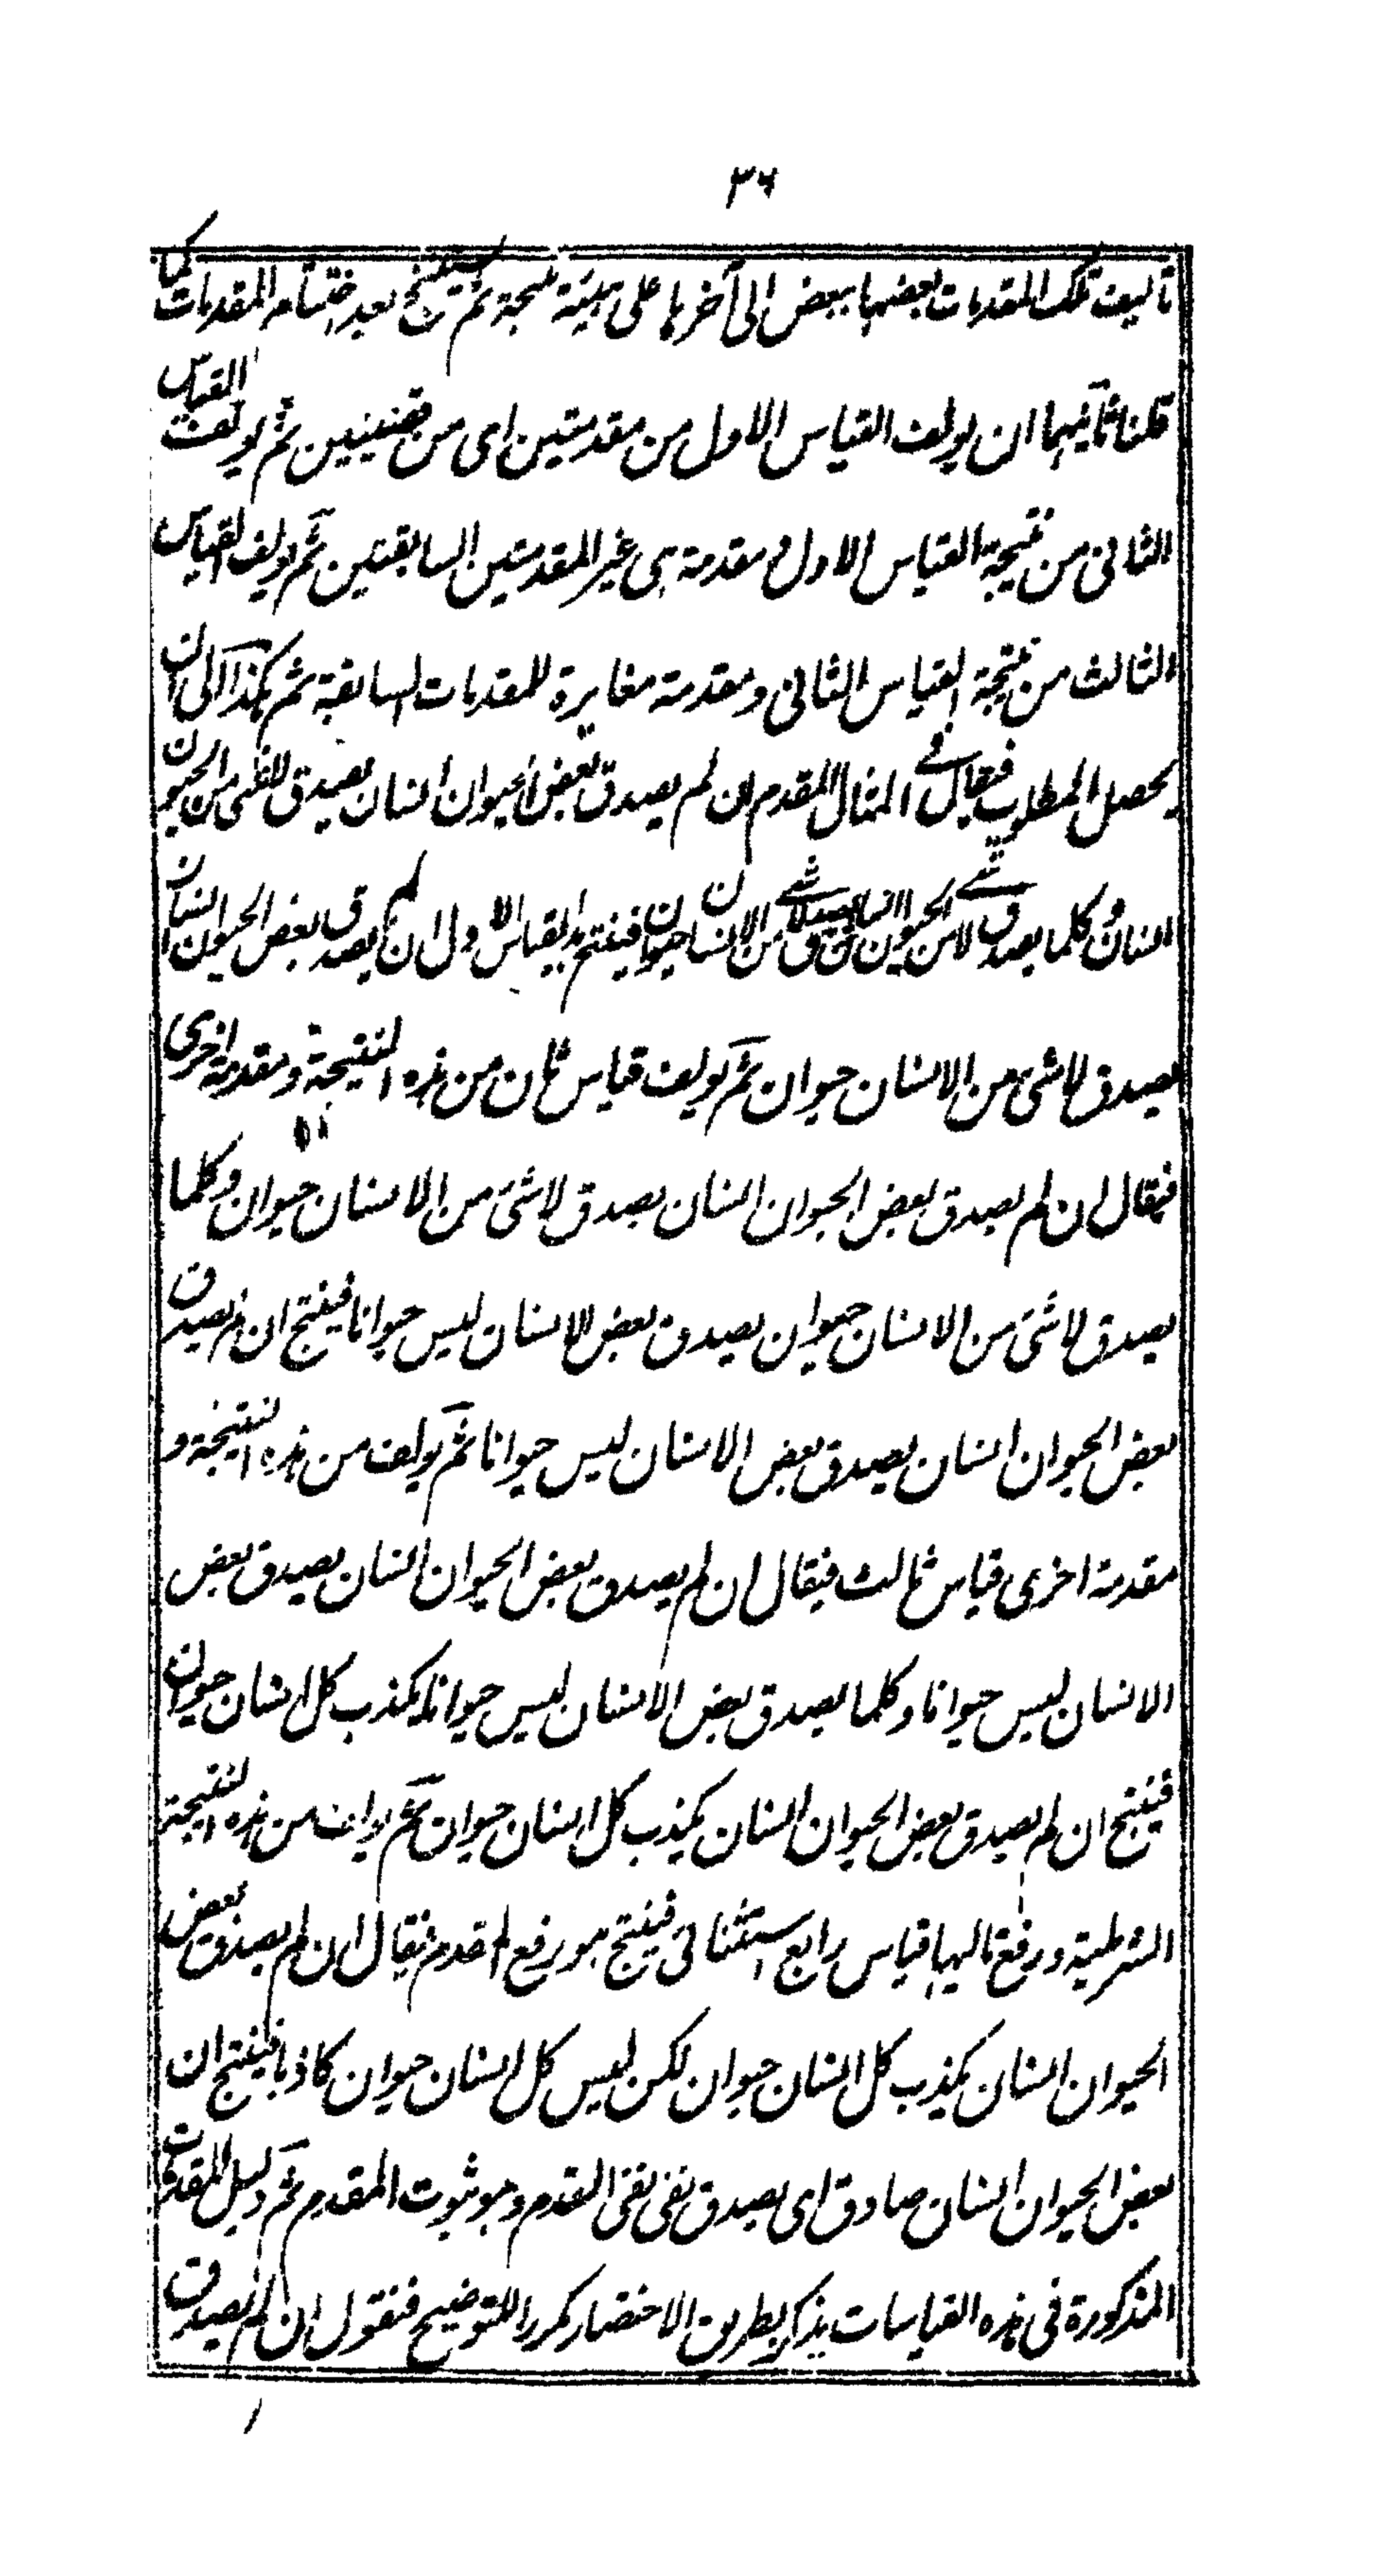 ٣٦
تاليف تلك المقدمات بعضها ببعض الى آخرها على هيئة منتجة ثم يستنتج بعد اختتام المقدمات كما
قلنا ثانيهما ان يولف القياس الاول من مقدمتين اى من قضيتين ثم يولف القياس
الثانى من نتيجة القياس الاول و مقدمة هى غير المقدمتين السابقتين ثم يولف القياس
الثالث من نتيجة القياس الثانى و مقدمة مغايرة للمقدمات السابقة ثم هكذا الى ان
يحصل المطلوب فيقال فى المثال المقدم ان لم يصدق بعض الحيوان انسان يصدق لاشى من الحيوان
انسان و كلما يصدق لاشئ من الحيوان انسان يصدق لاشئ من الانسان حيوان فينتج هذا القياس الاول ان لم يصدق بعض الحيوان انسان
يصدق لاشئ من الانسان حيوان ثم يولف قياس ثان من هذه النتيجة و مقدمة اخرى
فيقال ان لم يصدق بعض الحيوان انسان يصدق لاشئ من الانسان حيوان و كلما
يصدق لاشئ من الانسان حيوان يصدق بعض الانسان ليس حيوانا فينتج ان لم يصدق
بعض الحيوان انسان يصدق بعض الانسان ليس حيوانا ثم يولف من هذه النتيجة و
مقدمة اخرى قياس ثالث فيقال ان لم يصدق بعض الحيوان انسان يصدق بعض
الانسان ليس حيوانا و كلما يصدق بعض الانسان ليس حيوانا يكذب كل انسان حيوان
فينتج ان لم يصدق بعض الحيوان انسان يكذب كل انسان حيوان ثم يولف من هذه النتيجة
الشرطية و رفع تاليها قياس رابع استثنائى فينتج هو رفع المقدم فيقال ان لم يصدق بعض
الحيوان انسان يكذب كل انسان حيوان لكن ليس كل انسان حيوان كاذبا فينتج ان
بعض الحيوان انسان صادق اى يصدق نفى نفى المقدم و هو ثبوت المقدم ثم دليل المقدمات
المذكورة فى هذه القياسات يذكر بطريق الاختصار مكررا للتوضيح فنقول ان لم يصدق